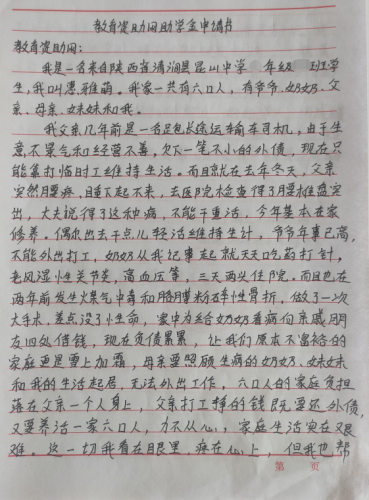 教育资助网助学金申请书
教育资助网：
我是一名来自陕西省清涧县昆山中学 年级 班学
生，我叫惠雅萌。我家一共有六口人，有爷爷、奶奶、父
亲、母亲、妹妹和我。
我父亲几年前是一名走包长途运输车司机，由于生
意不景气和经营不善，欠下一笔不小的外债，现在只
能靠打临时工维持生活。而且就在去年冬天，父亲
突然腰疼，睡下起不来，去医院检查得了腰椎盘突
出，大夫说得了这种病，不能干重活，今年基本在家
修养。偶尔出去干点儿轻活维持生计，爷爷年事已高，
不能外出打工，奶奶从我记事起就天天吃药打针，
老风湿性关节炎，高血压等，三天两头住院。而且也在
两年前发生煤气中毒和胳膊粉碎性骨折，做了一次
大手术，差点没了性命，家中为给奶奶看病向亲戚朋
友四处借钱，现在负债累累，让我们原本不富裕的
家庭更是雪上加霜，母亲要照顾生病的奶奶、妹妹
和我的生活起居，无法外出工作，六口人的家庭负担
落在父亲一个人身上，父亲打工挣的钱既要还外债，
又要养活一家六口人，力不从心，家庭生活实在艰
难。这一切我看在眼里，疼在心上，但我也帮
第 页